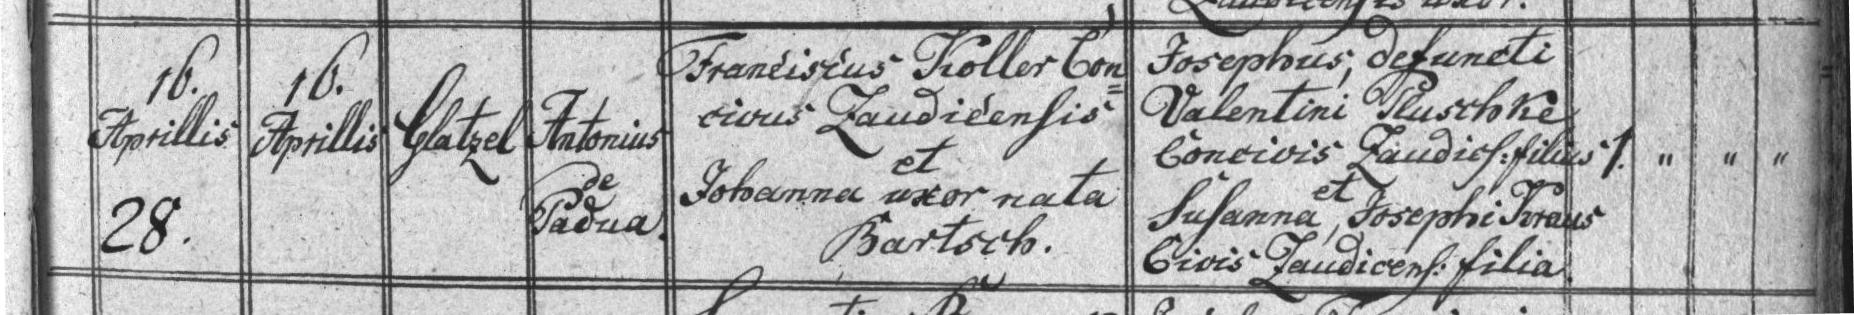 16.
Aprillis
28.
16.
Aprillis
Glatzel
Antonius
de
Padua.
Franciscus Koller Con=
civus Zaudicensis
et
Johanna uxor nata
Bartsch.
Josephus, defuncti
Valentini Pluschke
Concivis Zaudics: filius
et
Susanna, Josephi Kraus
Civis Zaudicens: filia.
1. " " "